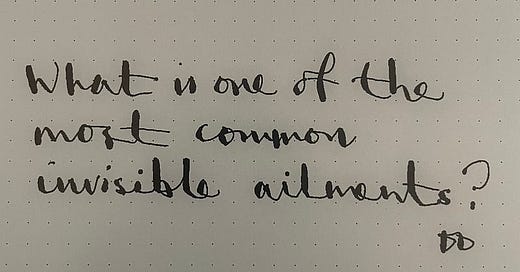 What is one of the
most common
invisible ailments?